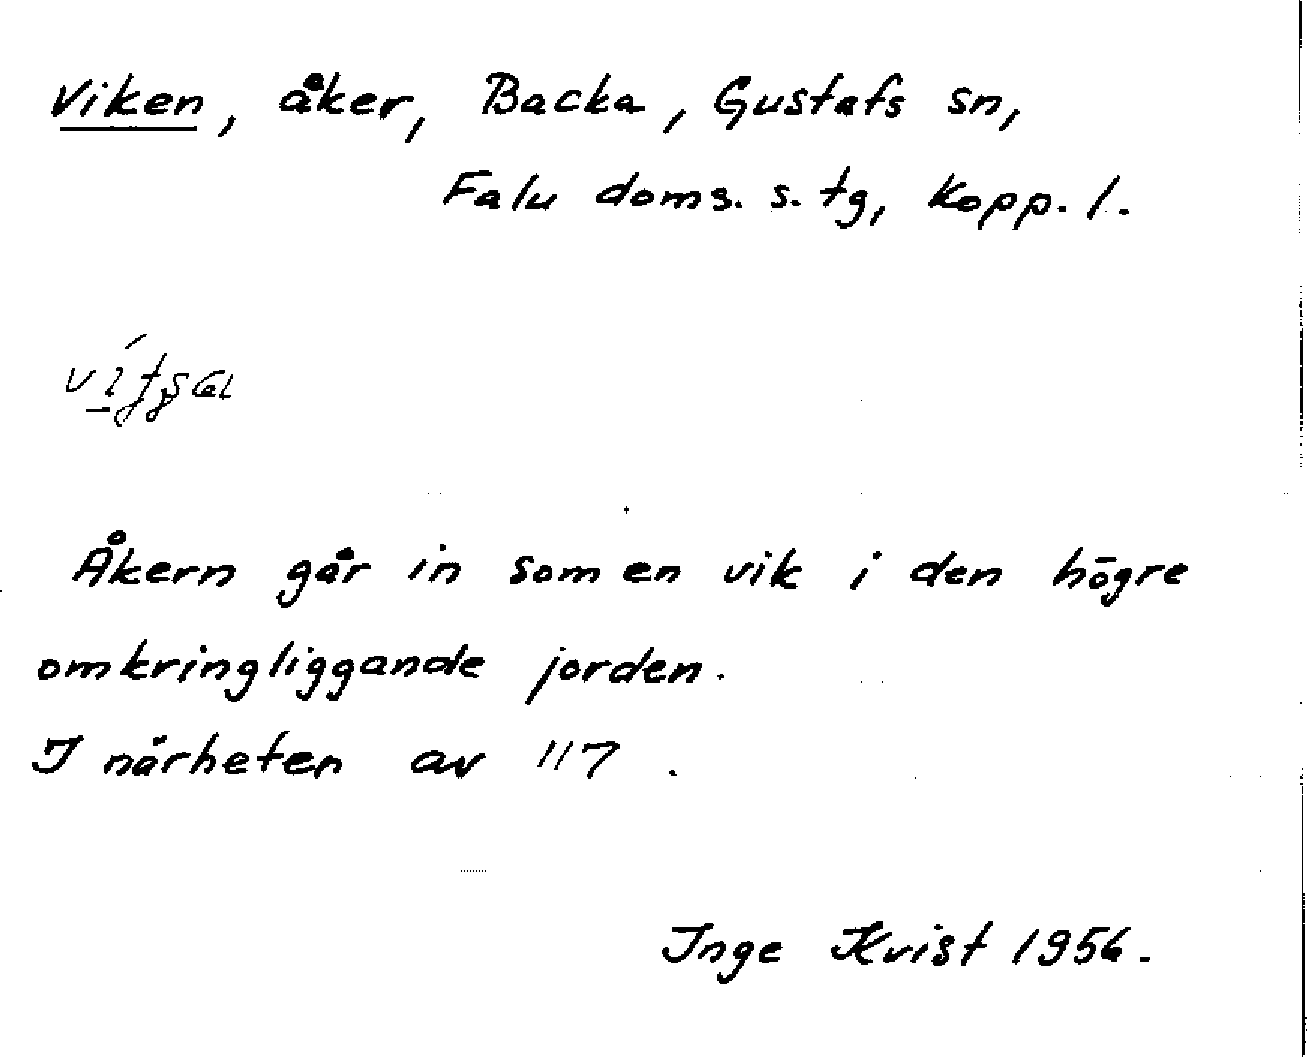 Viken, åker, Backa, Gustafs sn,
Falu doms. s. tg, Kopp. l.
Åkern går in som en vik i den högre
omkringliggande jorden.
I närheten av 117.
Inge Kvist 1956.